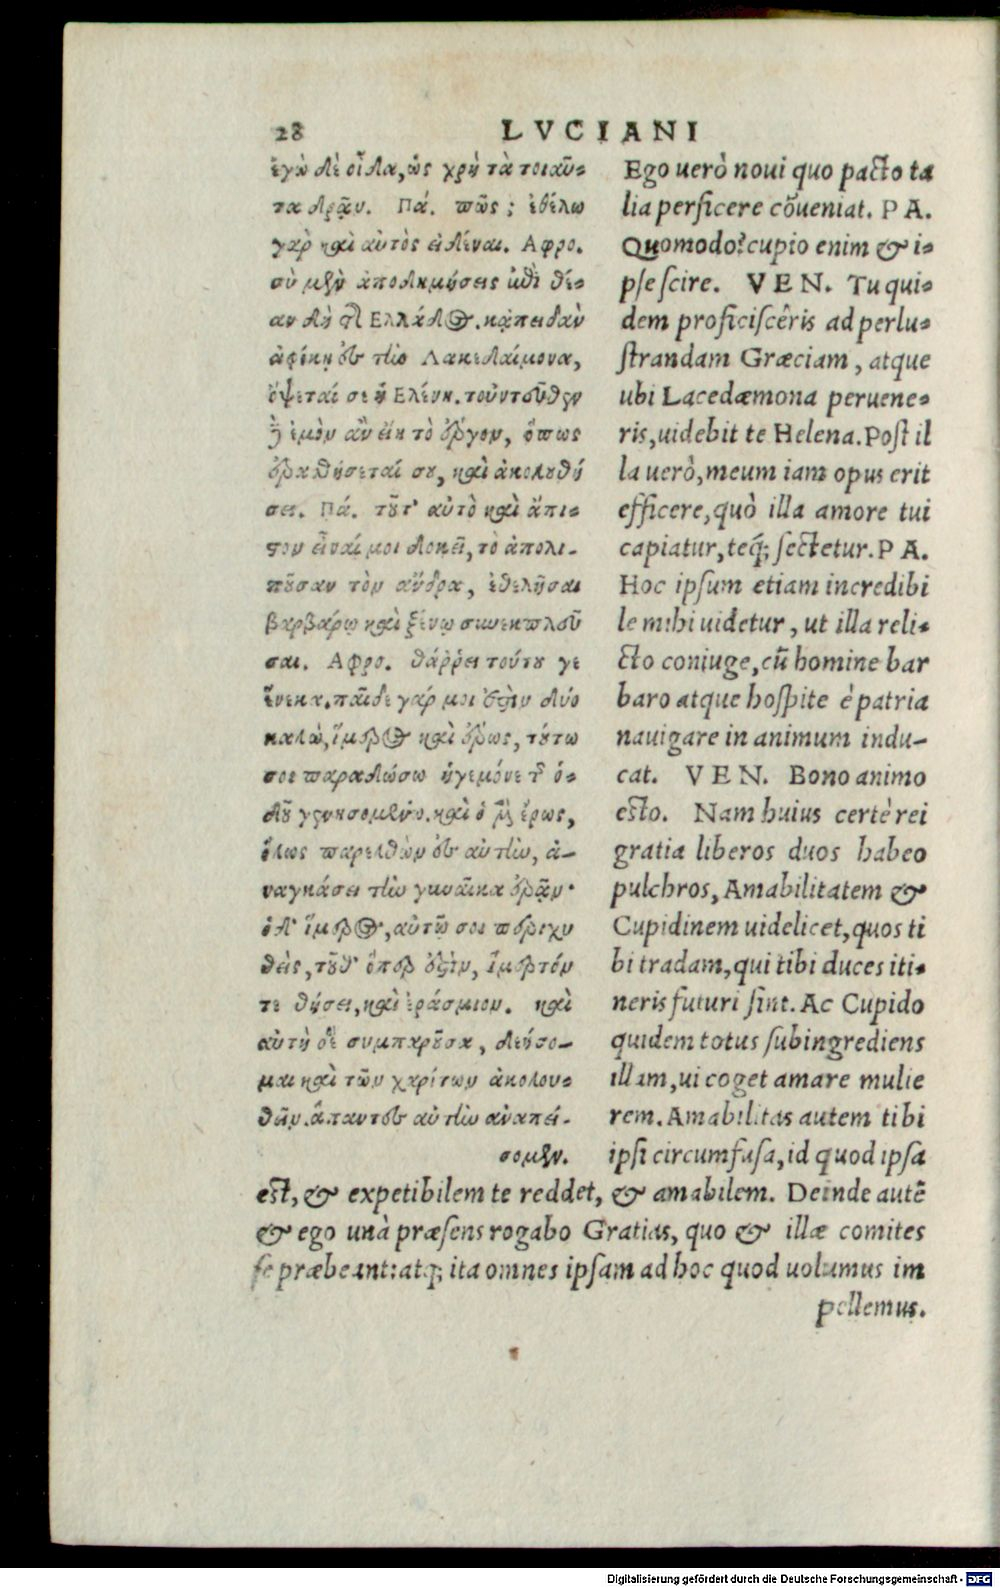 28 LVCIANI
ἐγὼ δὲ οἶδα, ὡς χρὴ τὰ τοιαῦ-
τα δρᾷν. Πά. πῶς; ἐθέλω
γὰρ καὶ αὐτὸς εἰδέναι. Αφρο.
σὺ μὲν ἀποδημήσεις ἐπὶ θέ-
αν δὴ τῆς Ελλάδος. κἀπειδὰν
ἀφίκῃ ἐς τὴν Λακεδαίμονα,
ὄψεταί σε ἡ Ελένη. τοὐντεῦθεν
δὲ ἐμὸν ἂν εἴη τὸ ἔργον, ὅπως
ἐρασθήσεταί σου, καὶ ἀκολουθή
σει. Πά. τοῦτ' αὐτὸ καὶ ἄπι-
στον εἶναί μοι δοκεῖ, τὸ ἀπολι-
ποῦσαν τὸν ἄνδρα, ἐθελῆσαι
βαρβάρῳ καὶ ξένῳ συνεκπλεῦ
σαι. Αφρο. θάρρει τούτου γε
ἕνεκα. παῖδε γάρ μοι ἐστὸν δύο
καλὼ, ἵμερος καὶ ἔρως, τούτω
σοι παραδώσω ἡγεμόνε τῆς ὁ-
δοῦ γενησομένω. καὶ ὁ μὲν ἔρως,
ὅλως παρελθὼν ἐς αὐτὴν, ἀ-
ναγκάσει τὴν γυναῖκα ἐρᾷν·
ὁ δ' ἵμερος, αὐτῷ σοι περιχυ
θεὶς, τοῦθ' ὅπερ ἐστὶν, ἱμερτόν
τε θήσει, καὶ ἐράσμιον. καὶ
αὐτὴ δὲ συμπαροῦσα, δεήσο-
μαι καὶ τῶν χαρίτων ἀκολου-
θεῖν. ἅπαντες αὐτὴν ἀναπεί-
σομεν.
Ego uerò noui quo pacto ta
lia perficere cõueniat. P A.
Quomodo? cupio enim & i-
pse scire. V E N. Tu qui-
dem proficiscêris ad perlu-
strandam Græciam, atque
ubi Lacedæmona peruene-
ris, uidebit te Helena. Post il
la uerò, meum iam opus erit
efficere, quò illa amore tui
capiatur, teq́; sectetur. P A.
Hoc ipsum etiam incredibi
le mihi uidetur, ut illa reli-
cto coniuge, cũ homine bar
baro atque hospite è patria
nauigare in animum indu-
cat. V E N. Bono animo
esto. Nam huius certè rei
gratia liberos duos habeo
pulchros, Amabilitatem &
Cupidinem uidelicet, quos ti
bi tradam, qui tibi duces iti-
neris futuri sint. Ac Cupido
quidem totus subingrediens
illam, ui coget amare mulie
rem. Amabilitas autem tibi
ipsi circumfusa, id quod ipsa
est, & expetibilem te reddet, & amabilem. Deinde autẽ
& ego unà præsens rogabo Gratias, quo & illæ comites
se præbeant: atq; ita omnes ipsam ad hoc quod uolumus im
pellemus.
Digitalisierung gefördert durch die Deutsche Forschungsgemeinschaft - DFG